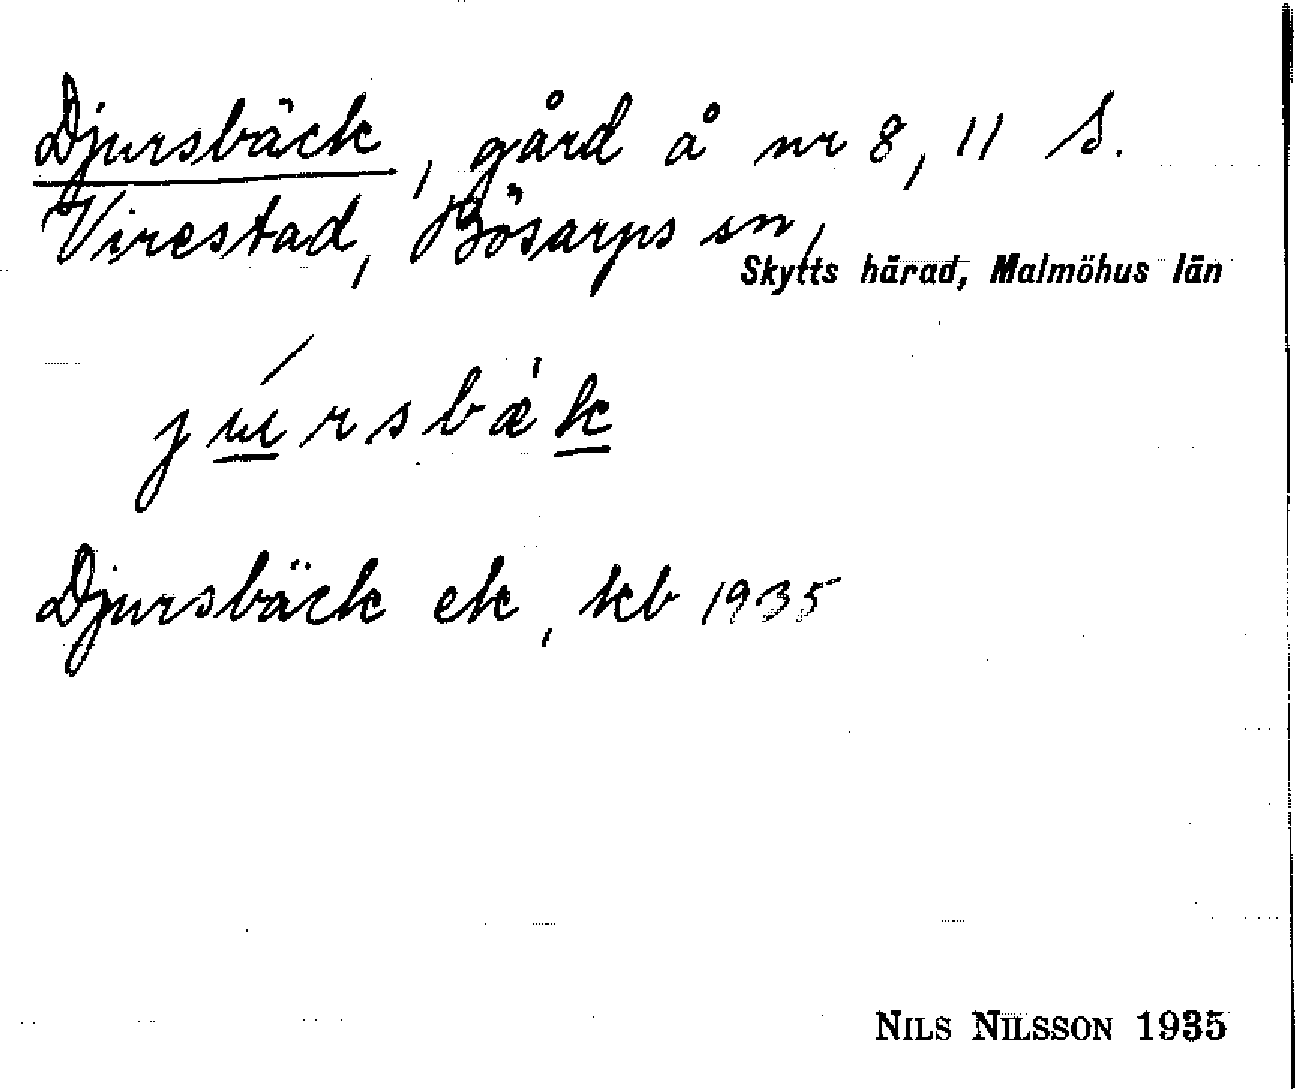 Djursbäck, gård å nr 8, 11 S.
Virestad, Bösarps sn,
Skytts härad, Malmöhus län
Djursbäck ek, kb 1935
NILS NILSSON 1935